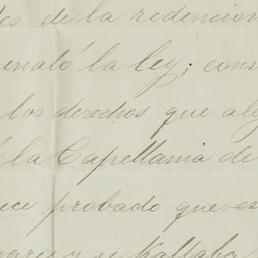 es de la redencion
enaló la ley; cons
los derechos que ale
la Capellania de
ece probado que es
se hallaba